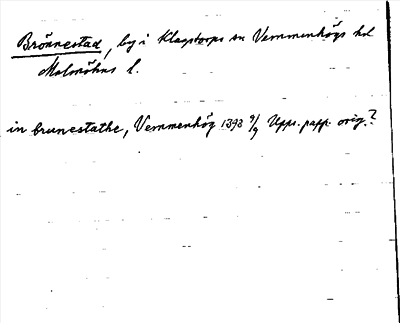 Brönnestad, by i Klagstorps sn Vemmenhögs hd
Malmöhus l.
in brunestathe, Vemmenhög 1393 9/9 Upps. papp. orig.?